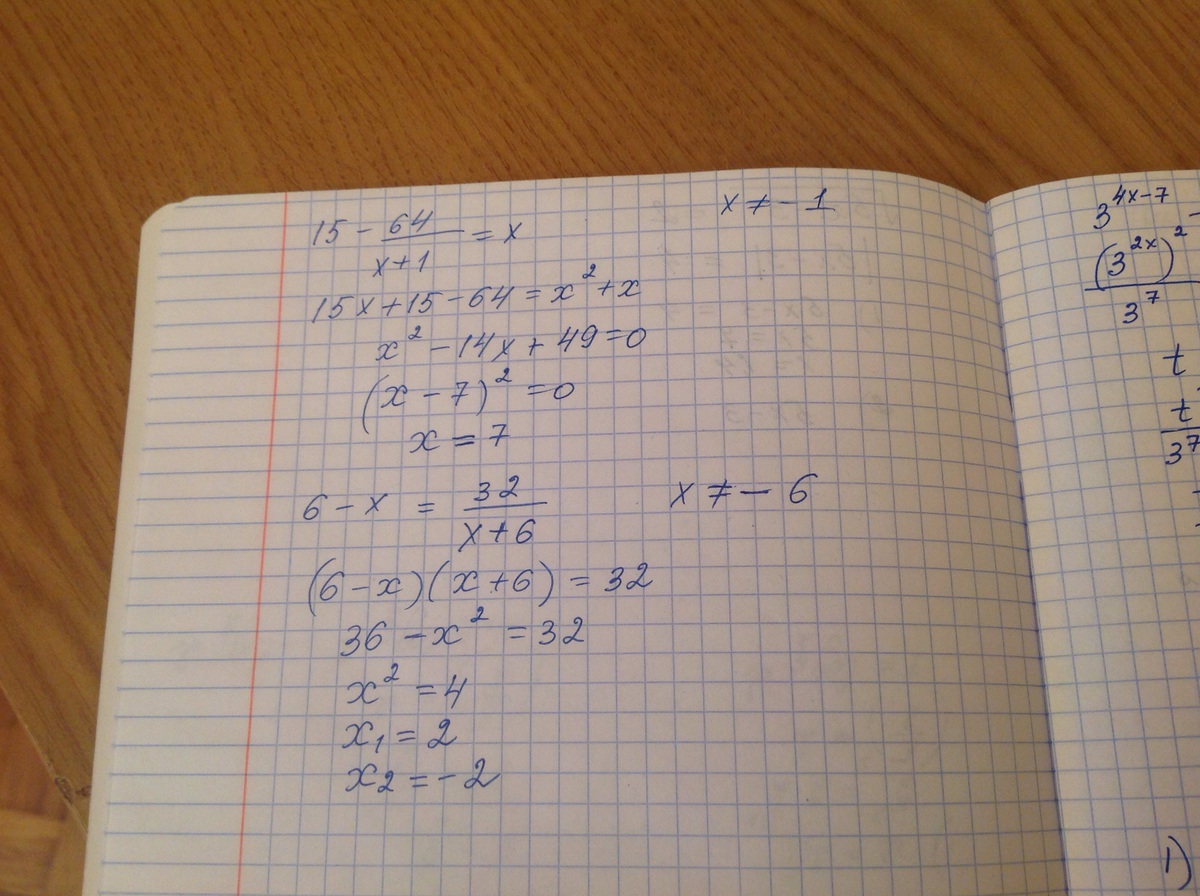 15 - 64/(x+1) = x    x ≠ -1
15x + 15 - 64 = x² + x
x² - 14x + 49 = 0
(x - 7)² = 0
x = 7
6 - x = 32/(x+6)    x ≠ - 6
(6 - x)(x + 6) = 32
36 - x² = 32
x² = 4
x₁ = 2
x₂ = -2
3^(4x-7)
(3^(2x))²/3⁷
t
t/3⁷
1)